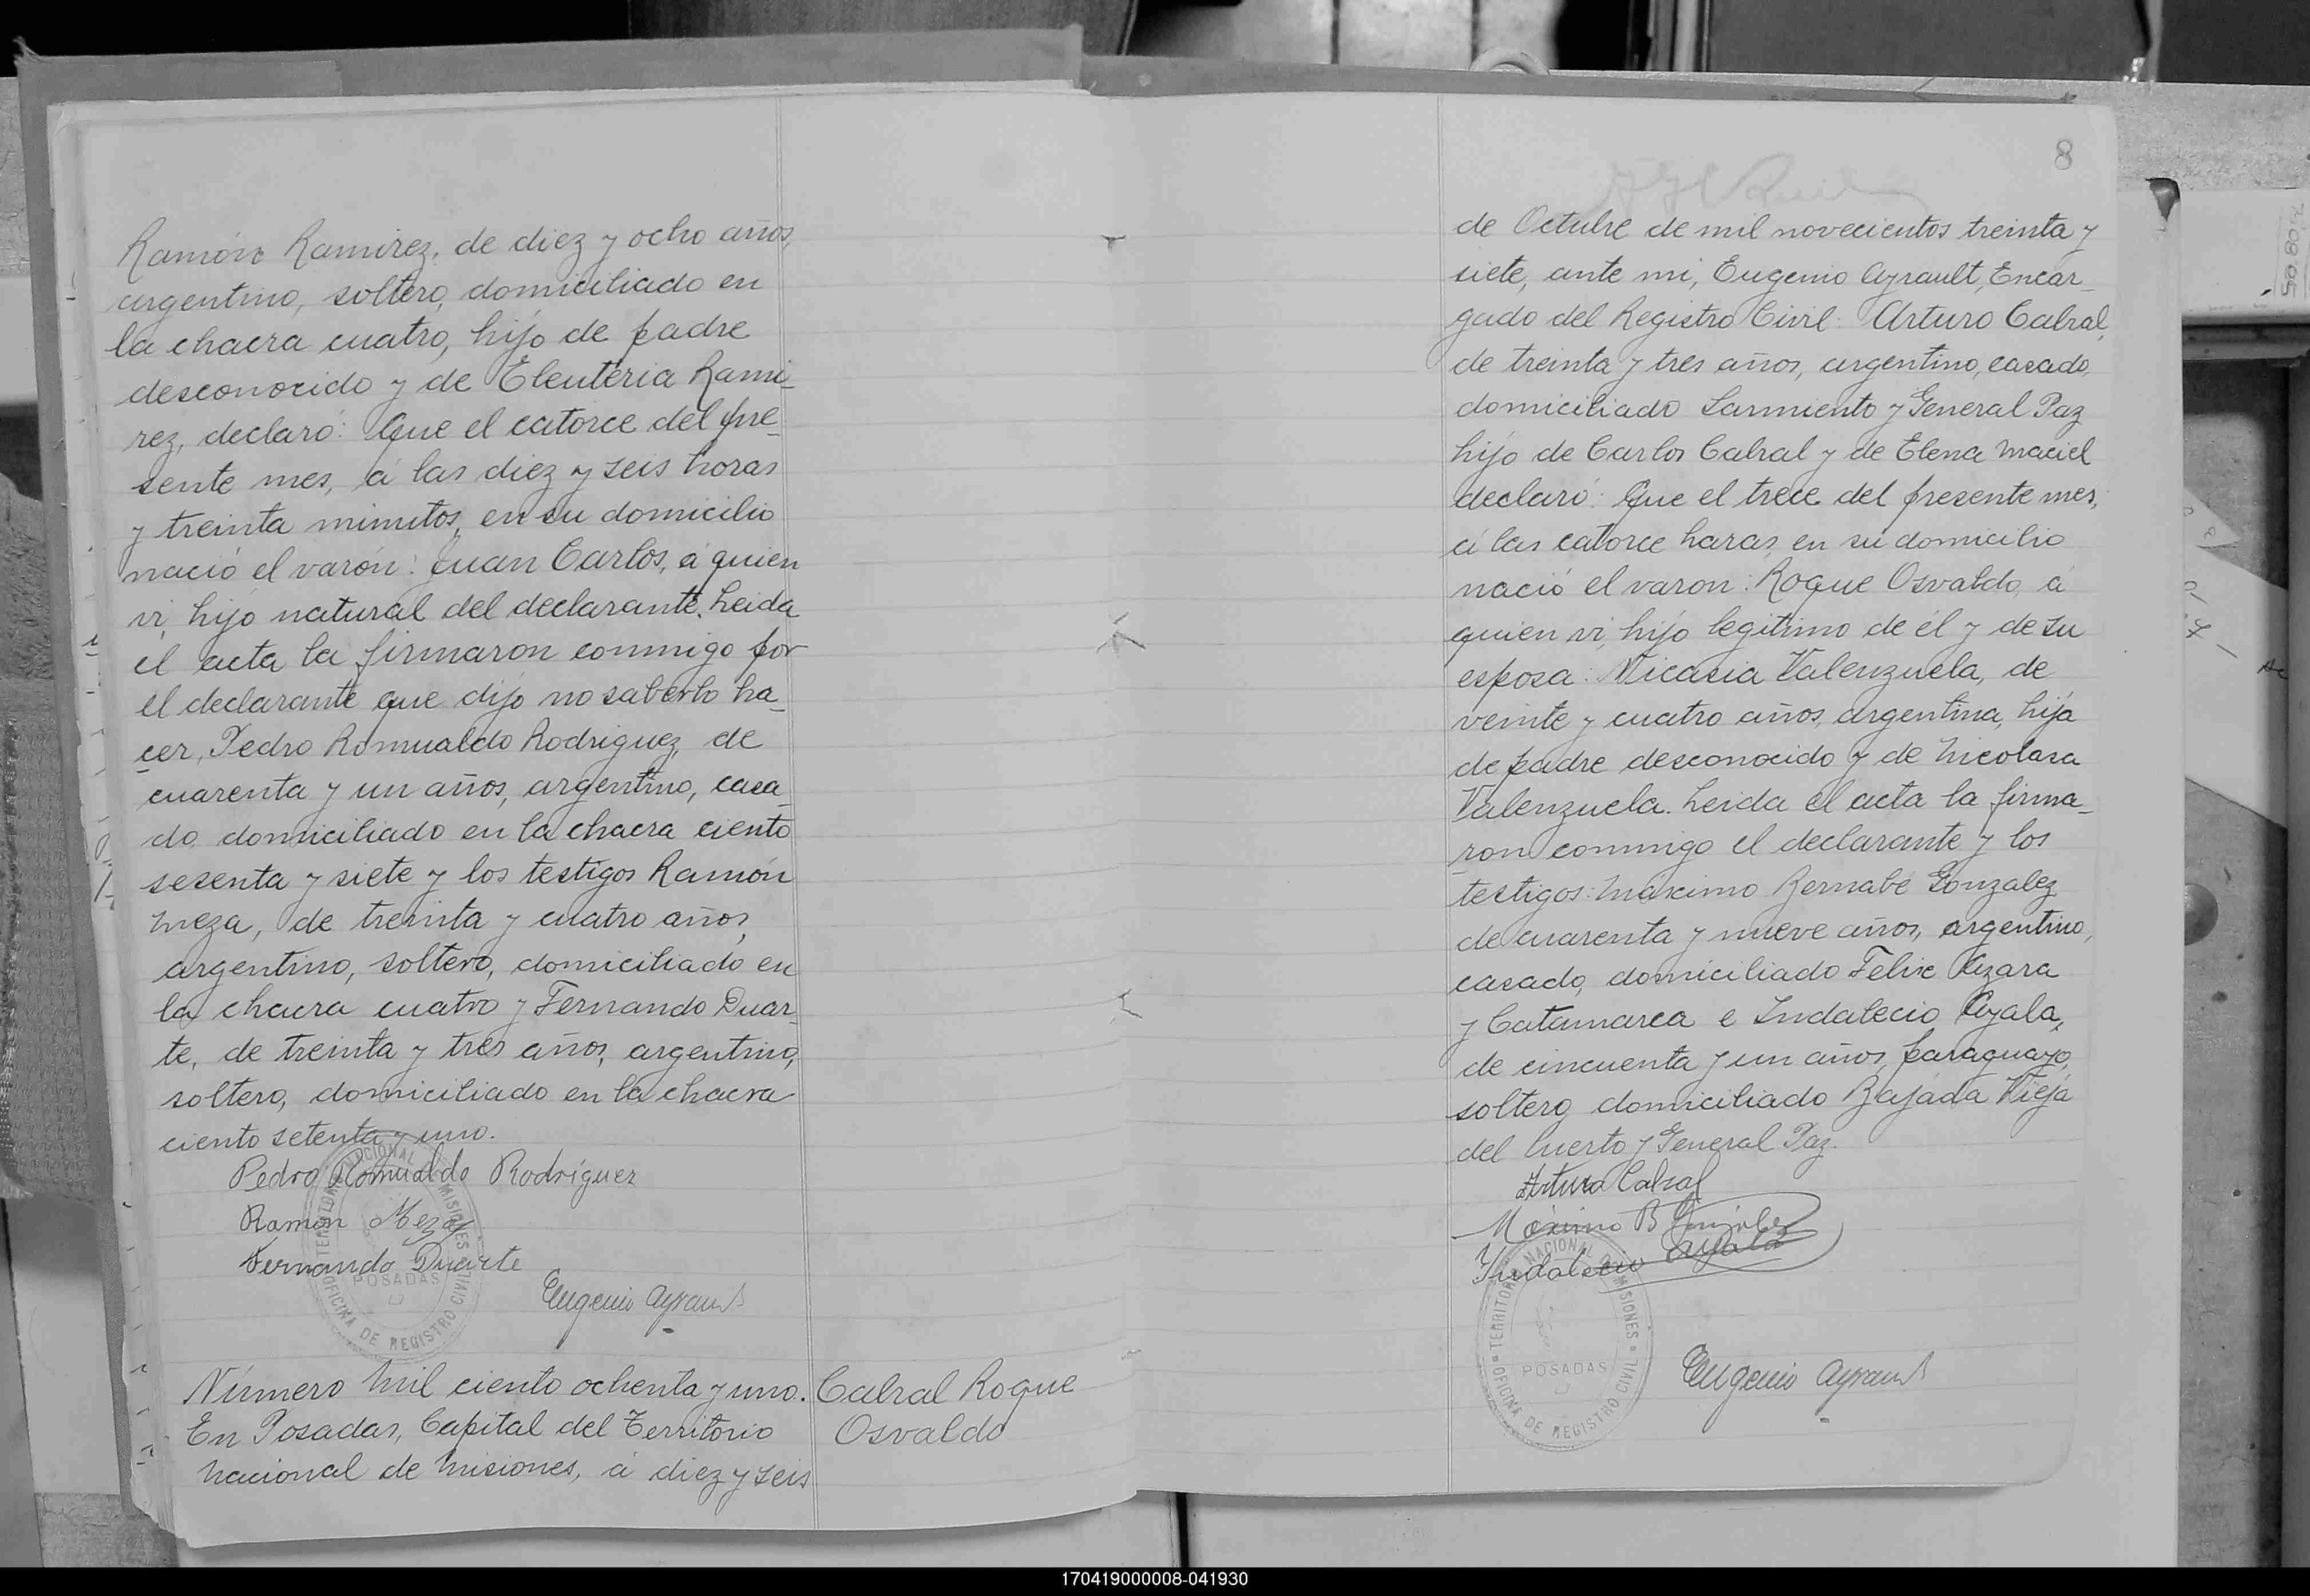 Ramón Ramirez, de diez y ocho años,
argentino, soltero, domiciliado en
la chacra cuatro, hijo de padre
desconocido y de Eleuteria Rami-
rez, declaró: Que el catorce del pre-
sente mes, á las diez y seis horas
y treinta minutos, en su domicilio
nació el varón: Juan Carlos, á quien
vi, hijo natural del declarante. Leida
el acta la firmaron conmigo por
el declarante que dijo no saberlo ha-
cer, Pedro Romualdo Rodriguez, de
cuarenta y un años, argentino, casa-
do, domiciliado en la chacra ciento
sesenta y siete y los testigos Ramón
Meza, de treinta y cuatro años,
argentino, soltero, domiciliado en
la chacra cuatro y Fernando Duar-
te, de treinta y tres años, argentino,
soltero, domiciliado en la chacra
ciento setenta y uno.
Pedro Romualdo Rodríguez
Ramón Meza
Fernando Duarte
Eugenio Ayrault
TERRITORIO NACIONAL DE MISIONES
POSADAS
OFICINA DE REGISTRO CIVIL
Número Mil ciento ochenta y uno.
En Posadas, Capital del Territorio
Nacional de Misiones, á diez y seis
Cabral Roque
Osvaldo
8
de Octubre de mil novecientos treinta y
siete, ante mi, Eugenio Ayrault, Encar-
gado del Registro Civil: Arturo Cabral,
de treinta y tres años, argentino, casado,
domiciliado Sarmiento y General Paz
hijo de Carlos Cabral y de Elena Maciel
declaró: Que el trece del presente mes,
á las catorce haras, en su domicilio
nació el varon: Roque Osvaldo, á
quien vi, hijo legitimo de él y de su
esposa: Nicasia Valenzuela, de
veinte y cuatro años, argentina, hija
de padre desconocido y de Nicolasa
Valenzuela. Leida el acta la firma-
ron conmigo el declarante y los
testigos: Maximo Bernabé Gonzalez
de cuarenta y nueve años, argentino,
casado, domiciliado Felix Azara
y Catamarca e Indalecio Ayala,
de cincuenta y un años, paraguayo,
soltero, domiciliado Bajada Vieja
del Puerto y General Paz.
Arturo Cabral
Máximo B González
Indalecio Ayala
TERRITORIO NACIONAL DE MISIONES
POSADAS
OFICINA DE REGISTRO CIVIL
Eugenio Ayrault
170419000008-041930